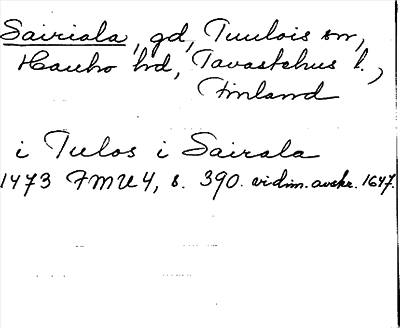 Sairiala, gd, Tuulois sn,
Hauho hd, Tavastehus l.,
Finland
i Tulos i Sairala
1473 FMU 4, s. 390. vidim. avskr. 1647.